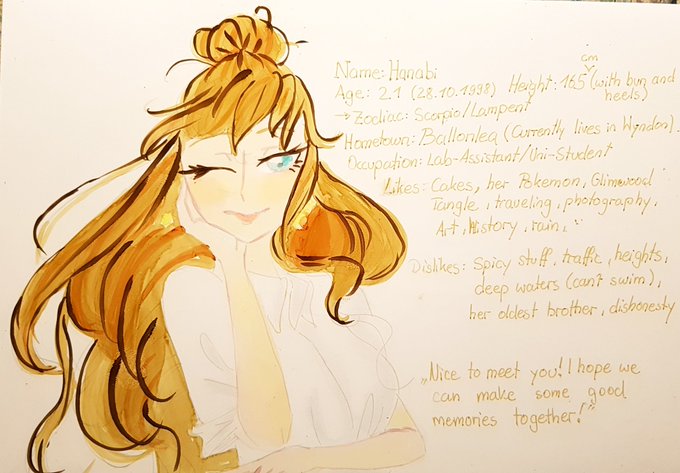 Name: Hanabi
Age: 21 (28.10.1998) Height: 165 cm (with bun and heels)
→ Zodiac: Scorpio/Lampent
Hometown: Ballonlea (Currently lives in Wyndon).
Occupation: Lab-Assistant/Uni-Student
Likes: Cakes, her Pokemon, Glimwood
Tangle, traveling, photography,
Art, History, rain,
Dislikes: Spicy stuff, traffic, heights,
deep waters (can't swim),
her oldest brother, dishonesty
„Nice to meet you! I hope we
can make some good
memories together!"